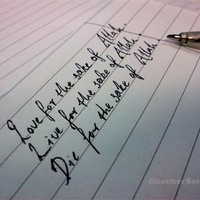 Love for the sake of Allah.
Live for the sake of Allah.
Die for the sake of Allah.